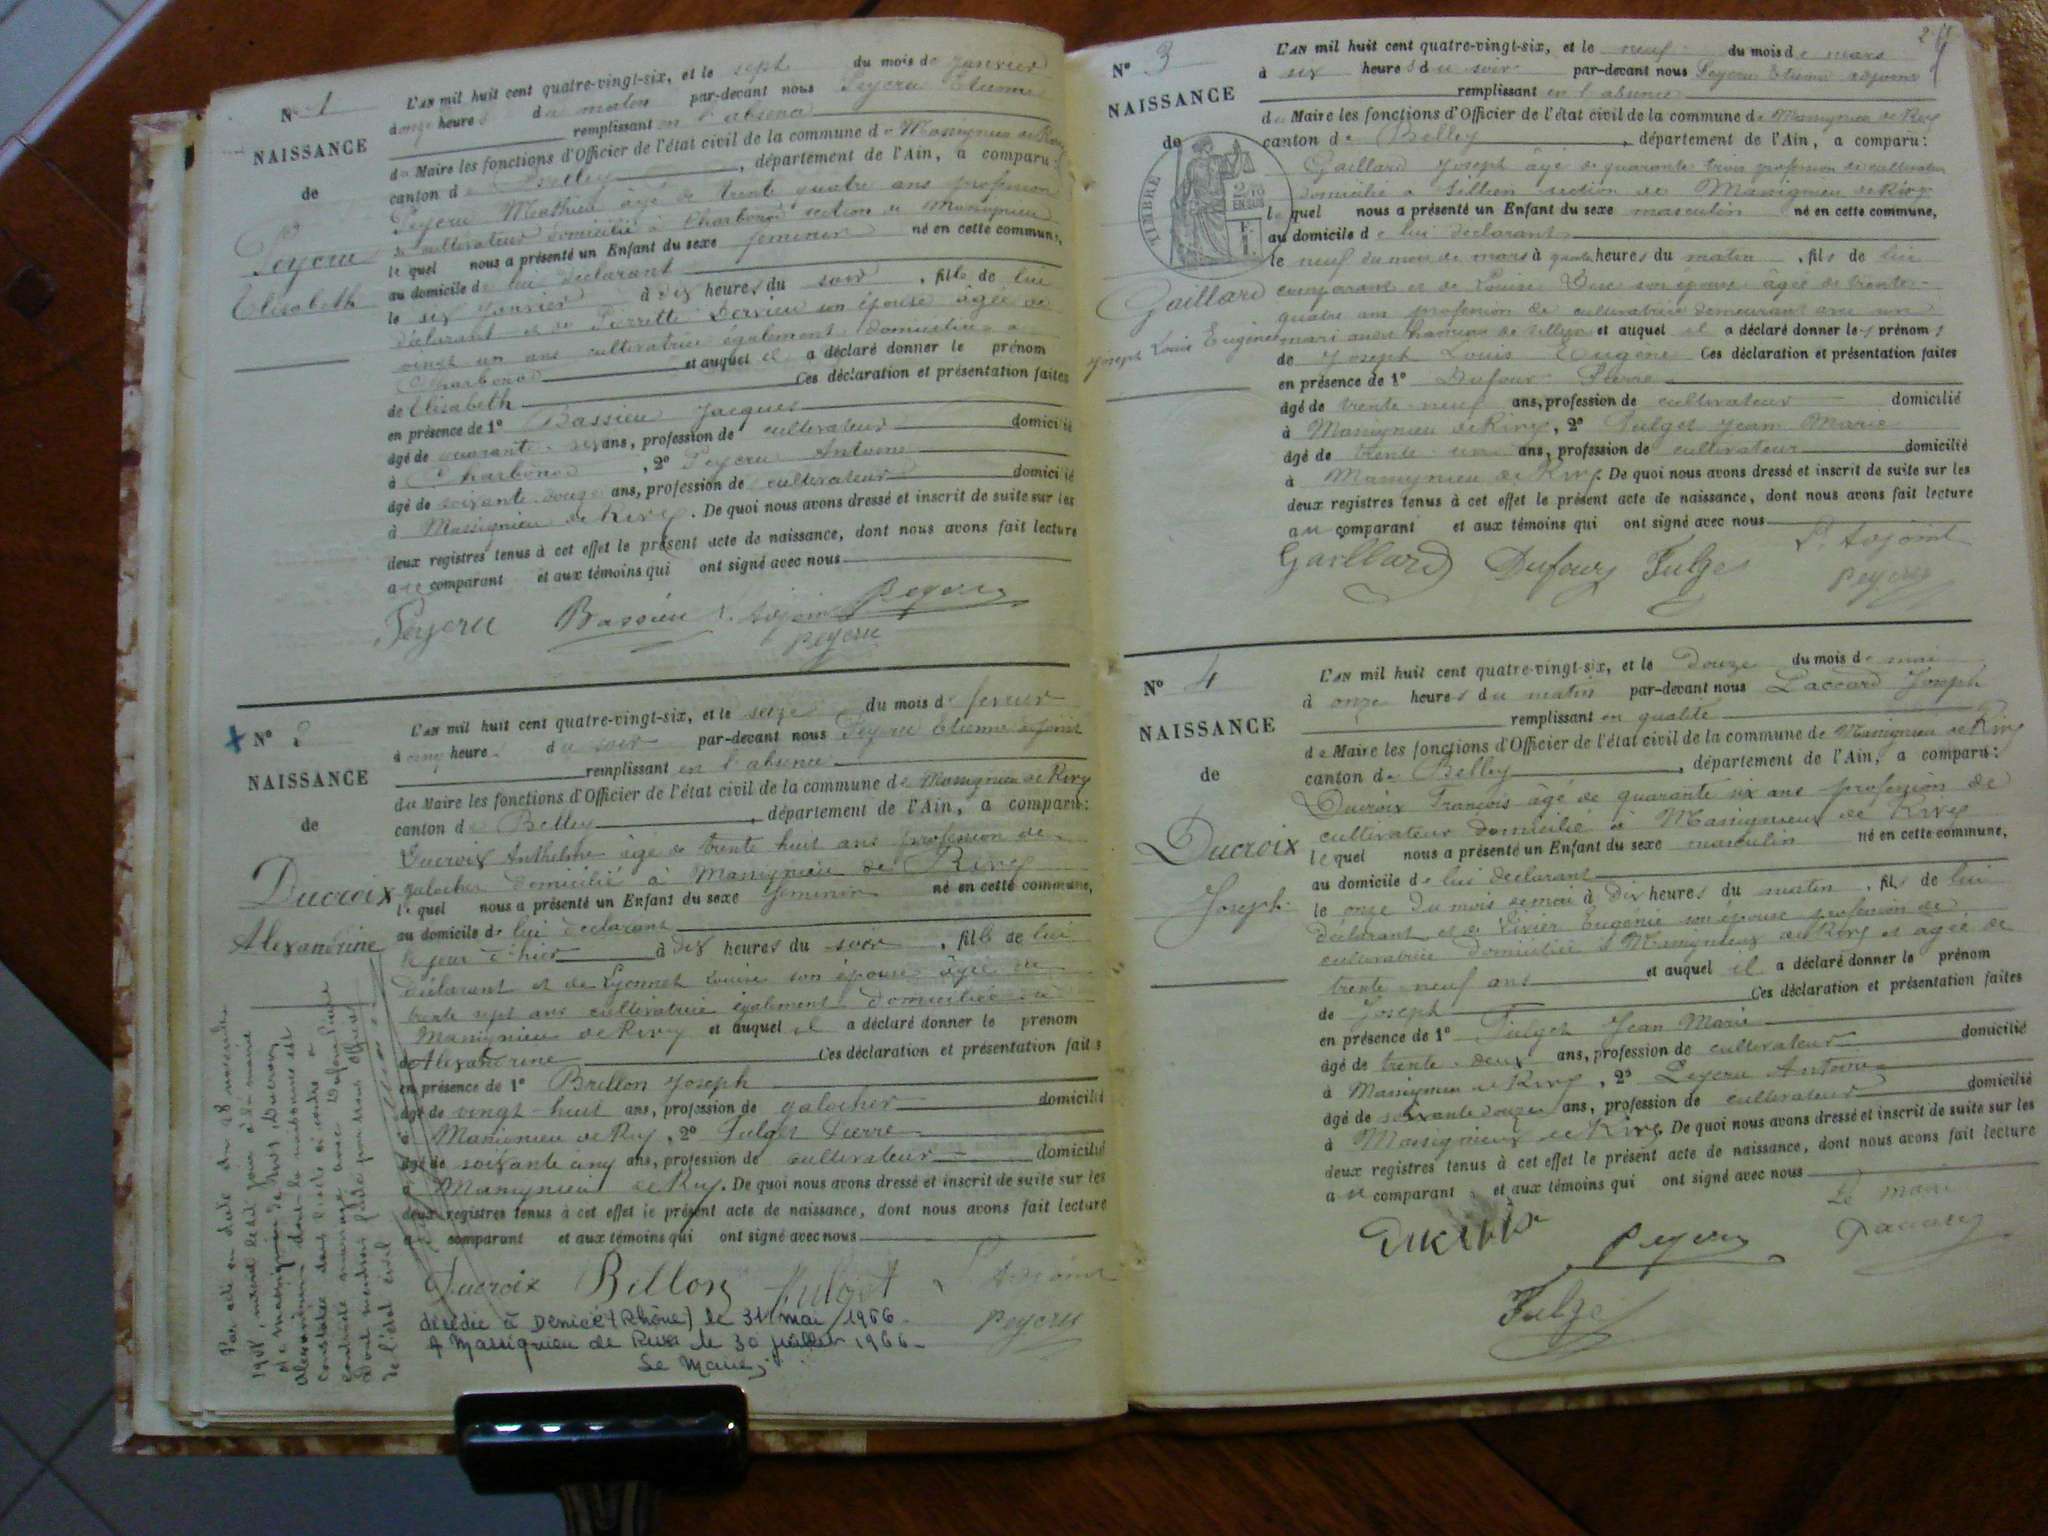 N° 1
NAISSANCE
de
Peycru
Elisabeth
L'AN mil huit cent quatre-vingt-six, et le sept du mois de janvier
à onze heures du matin par-devant nous Peycru Etienne
remplissant en l'absence
du Maire les fonctions d'Officier de l'état civil de la commune de Massignieu de Rives
canton de Belley, département de l'Ain, a comparu:
Peycru Mathieu âgé de trente quatre ans profession
de cultivateur domicilié à Charbonod section de Massignieu
lequel nous a présenté un Enfant du sexe feminin né en cette commune,
au domicile de lui déclarant
le six janvier à dix heures du soir, fille de lui
déclarant et de Perrette Dervieu son épouse âgée de
vingt un ans cultivatrice également domiciliée à
Charbonod et auquel il a déclaré donner le prénom
de Elisabeth Ces déclaration et présentation faites
en présence de 1° Bassieu Jacques
âgé de quarante six ans, profession de cultivateur domicilié
à Charbonod, 2° Peycru Antoine
âgé de soixante douze ans, profession de cultivateur domicilié
à Massignieu de Rives. De quoi nous avons dressé et inscrit de suite sur les
deux registres tenus à cet effet le présent acte de naissance, dont nous avons fait lecture
au comparant et aux témoins qui ont signé avec nous
Peycru Bassieu L'adjoint Peycru
peycru
N° 2
NAISSANCE
de
Ducroix
Alexandrine
L'AN mil huit cent quatre-vingt-six, et le seize du mois de fevrier
à cinq heures du soir par-devant nous Peycru Etienne adjoint
remplissant en l'absence
du Maire les fonctions d'Officier de l'état civil de la commune de Massignieu de Rives
canton de Belley, département de l'Ain, a comparu:
Ducroix Anthelme âgé de trente huit ans profession de
galocher domicilié à Massignieu de Rives
lequel nous a présenté un Enfant du sexe feminin né en cette commune,
au domicile de lui déclarant
le jour d'hier à dix heures du soir, fille de lui
déclarant et de Lyonnet Louise son épouse âgée de
trente sept ans cultivatrice également domiciliée à
Massignieu de Rives et auquel il a déclaré donner le prénom
de Alexandrine Ces déclaration et présentation faites
en présence de 1° Brillon Joseph
âgé de vingt-huit ans, profession de galocher domicilié
à Massignieu de Rives, 2° Fulget Pierre
âgé de soixante cinq ans, profession de cultivateur domicilié
à Massignieu de Rives. De quoi nous avons dressé et inscrit de suite sur les
deux registres tenus à cet effet le présent acte de naissance, dont nous avons fait lecture
au comparant et aux témoins qui ont signé avec nous
Ducroix Billon Fulget L'Adjoint
Peycru
décédée à Denicé (Rhône) le 31 mai 1966
à Massignieu de Rives le 30 juillet 1966
Le Maire,
Par acte en date du 28 novembre
1908, inscrit le dit jour à la mairie
de Massignieu de Rives, Ducroix
Alexandrine dont la naissance est
constatée dans l'acte ci contre a
contracté mariage avec Dufour Pierre
Dont mention faite par nous officier
de l'état civil
N° 3
NAISSANCE
de
TIMBRE
Gaillard
Joseph Louis Eugène
L'AN mil huit cent quatre-vingt-six, et le neuf du mois de mars
à six heures du soir par-devant nous Peycru Etienne adjoint
remplissant en l'absence
du Maire les fonctions d'Officier de l'état civil de la commune de Massignieu de Rives
canton de Belley, département de l'Ain, a comparu:
Gaillard Joseph âgé de quarante trois profession de cultivateur
domicilié à Sillien section de Massignieu de Rives
lequel nous a présenté un Enfant du sexe masculin né en cette commune,
au domicile de lui déclarant
le neuf du mois de mars à quatre heures du matin, fils de lui
comparant et de Louise Duc son épouse âgée de trente
quatre ans profession de cultivatrice demeurant avec son
mari au hameau de Sillien et auquel il a déclaré donner les prénoms
de Joseph Louis Eugène Ces déclaration et présentation faites
en présence de 1° Dufour Pierre
âgé de trente neuf ans, profession de cultivateur domicilié
à Massignieu de Rives, 2° Fulget Jean Marie
âgé de trente un ans, profession de cultivateur domicilié
à Massignieu de Rives. De quoi nous avons dressé et inscrit de suite sur les
deux registres tenus à cet effet le présent acte de naissance, dont nous avons fait lecture
au comparant et aux témoins qui ont signé avec nous
Gaillard Dufour Fulge L'Adjoint
peycru
N° 4
NAISSANCE
de
Ducroix
Joseph
L'AN mil huit cent quatre-vingt-six, et le douze du mois de mai
à onze heures du matin par-devant nous Paccard Joseph
remplissant en qualité
de Maire les fonctions d'Officier de l'état civil de la commune de Massignieu de Rives
canton de Belley, département de l'Ain, a comparu:
Ducroix François âgé de quarante six ans profession de
cultivateur domicilié à Massignieu de Rives
lequel nous a présenté un Enfant du sexe masculin né en cette commune,
au domicile de lui déclarant
le onze du mois de mai à dix heures du matin, fils de lui
déclarant et de Livier Eugenie son épouse profession de
cultivatrice domiciliée à Massignieu de Rives et agée de
trente neuf ans et auquel il a déclaré donner le prénom
de Joseph Ces déclaration et présentation faites
en présence de 1° Fulget Jean Marie
âgé de trente-deux ans, profession de cultivateur domicilié
à Massignieu de Rives, 2° Peycru Antoine
âgé de soixante douze ans, profession de cultivateur domicilié
à Massignieu de Rives. De quoi nous avons dressé et inscrit de suite sur les
deux registres tenus à cet effet le présent acte de naissance, dont nous avons fait lecture
au comparant et aux témoins qui ont signé avec nous
Ducroix Peycru Le maire
Paccard
Fulge